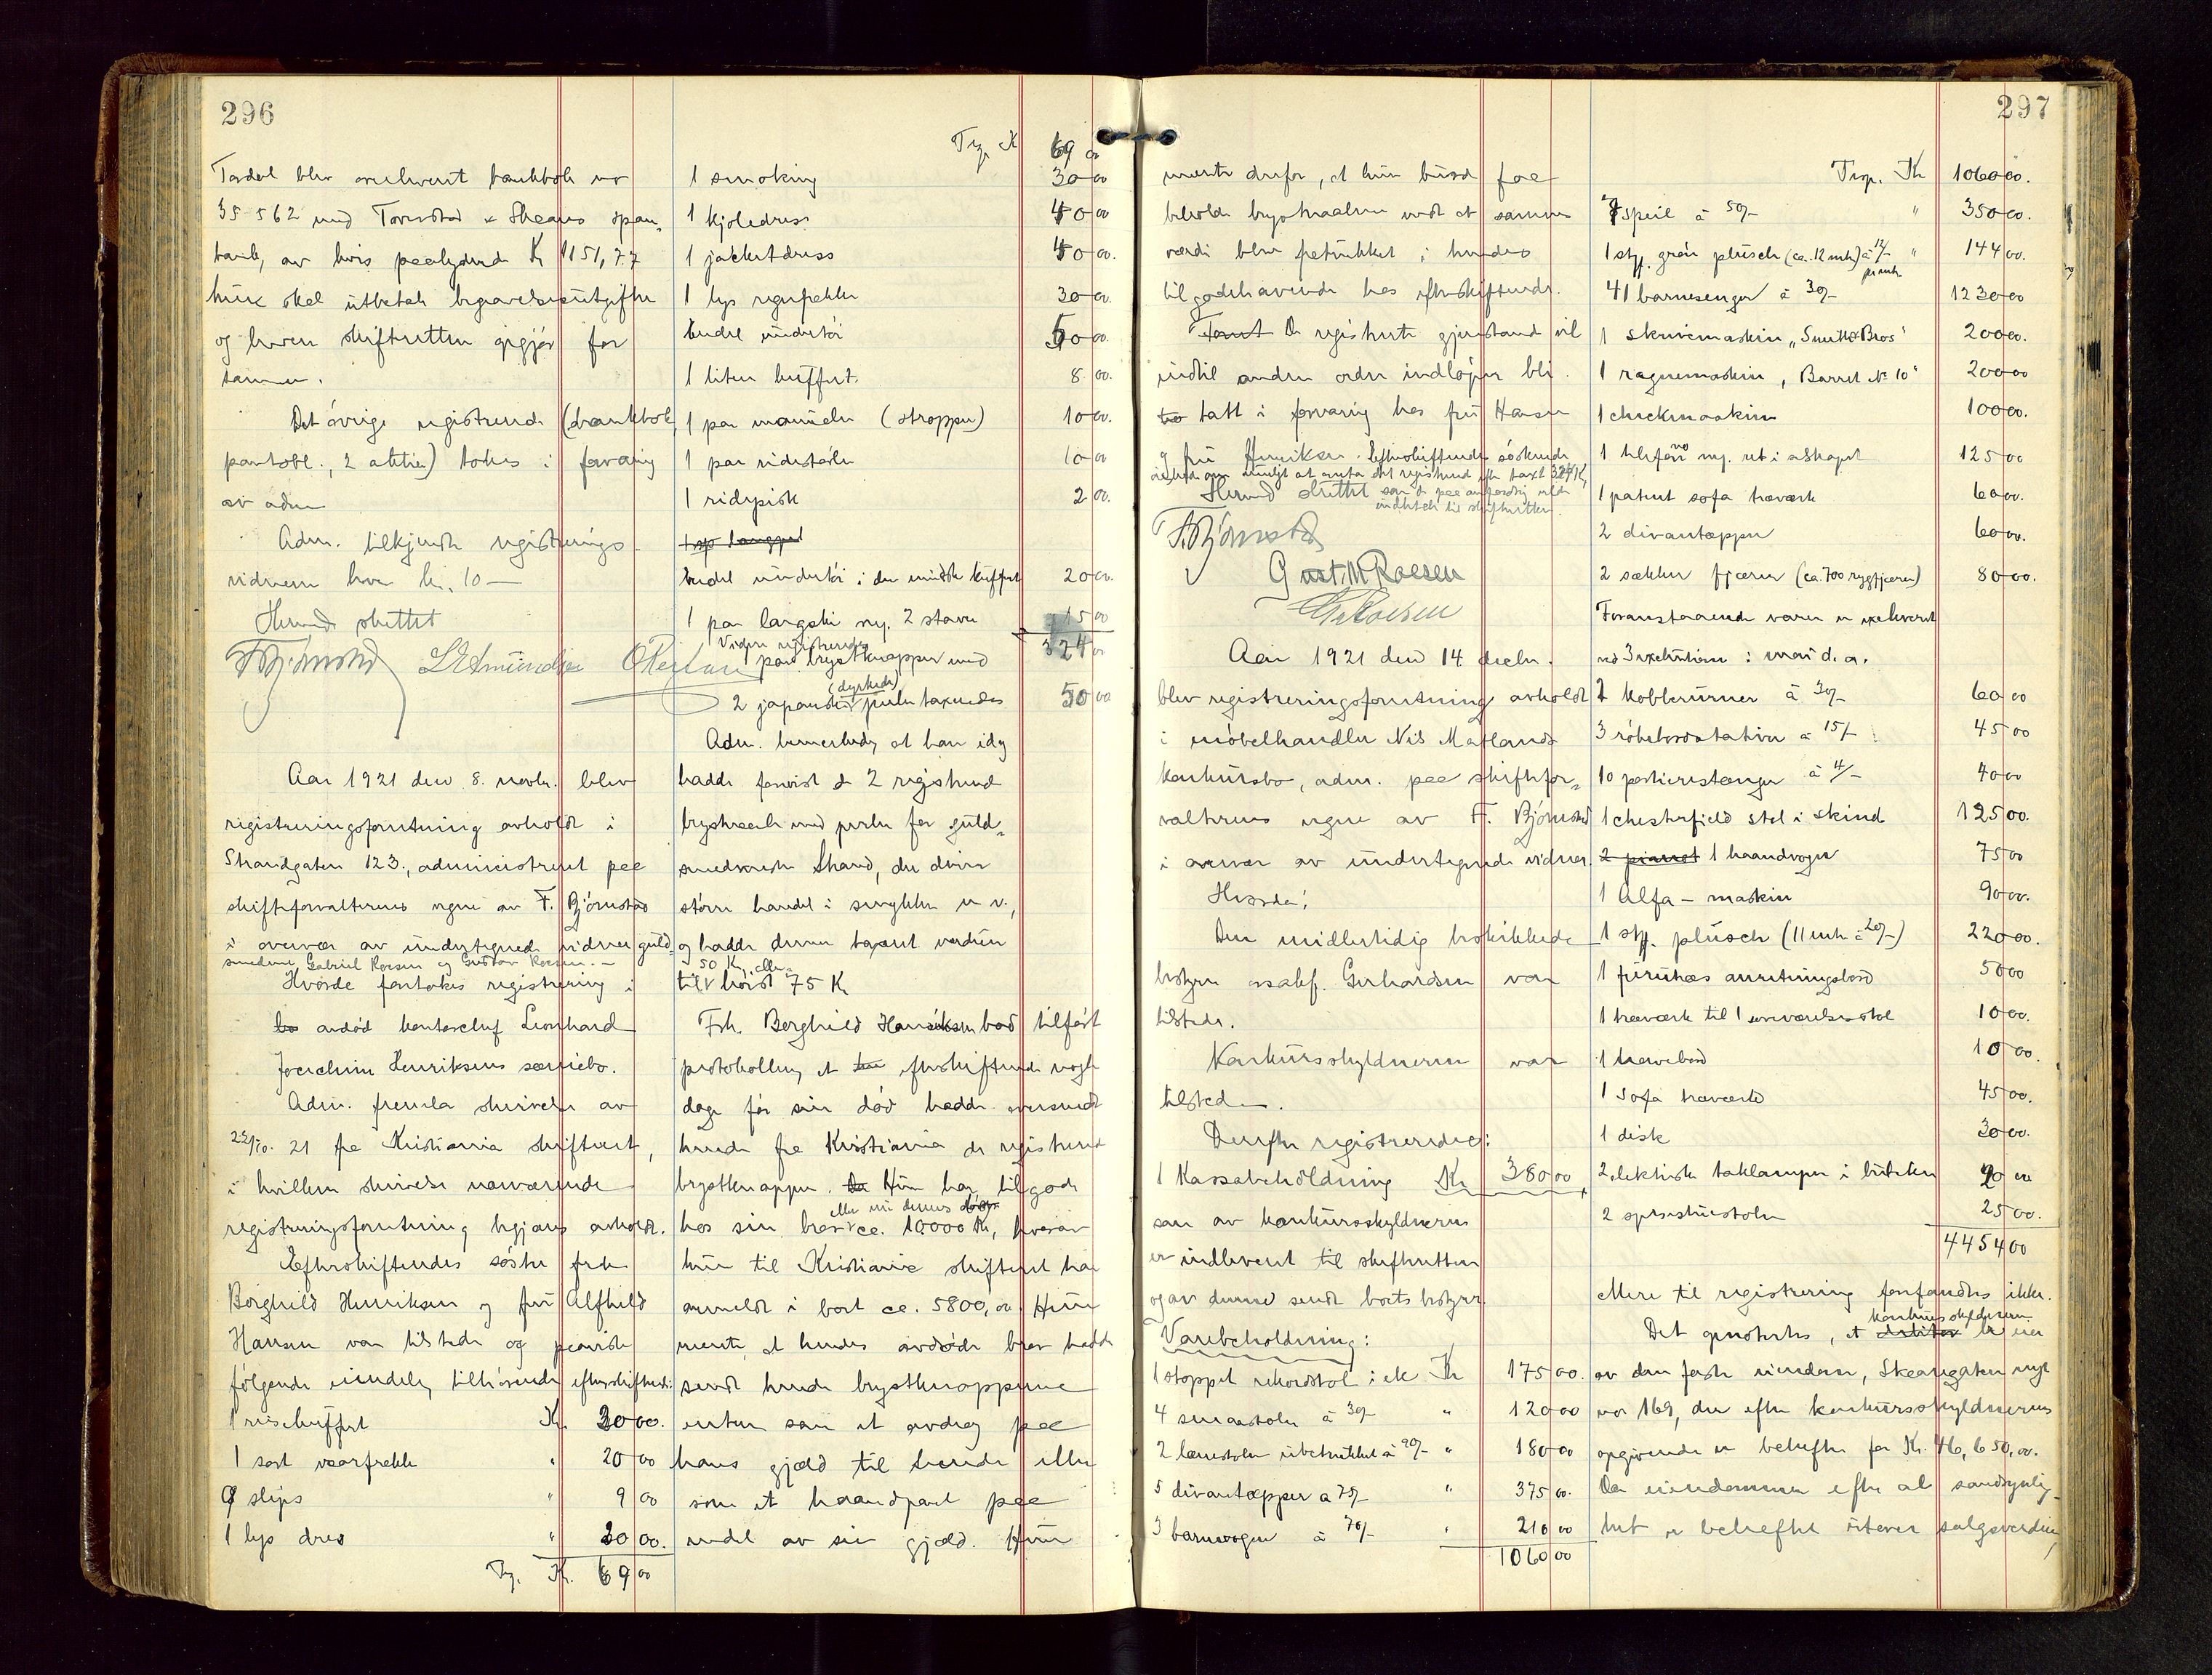 296
Tordal blev overlevert bankbok nr
35562 med Torvestad & Skeanes spare-
bank, av hvis paalydende Kr 1151,77
hun skal utbetale begravelsesutgifter
og herom skifteretten opgjør for
samme.
Det øvrige registrerede (bankbok,
pantobl., 2 aktier) tokes i forvaring
av adm
Adm. tilkjendte registrerings-
vidnerne hver kr. 10 —
Herved sluttet
F Bjørnstad
Aar 1921 den 8. novbr. blev
registreringsforretning avholdt i
Strandgaten 123., administrert paa
skifteforvalterens vegne av F. Bjørnstad
i overvær av undertegnede vidner guld-
smedene Gabriel Roesen og Gustav Roesen. —
Hvorde foretokes registrering i
bo avdød kontorchef Leonhard
Joachim Henriksens særeiebo.
Adm. fremla skrivelse av
22/10. 21 fra Kristiania skifteret,
i hvilken skrivelse nærværende
registreringsforretning begjæres avholdt.
Efterskiftendes søstre frk.
Borghild Henriksen og fru Alfhild
Hansen var tilstede og paaviste
følgende eiendele, tilhørende efterskiftende:
1 reisekuffert Kr. 20 00.
1 sort vaarfrakke " 20 00
9 slips " 9 00
1 lys dres " 20 00.
Trsp. Kr. 69 00
Trsp. K 69 00
1 smoking 30 00
1 kjoledress 40 00
1 jacketdress 40 00.
1 lys regnfrakke 30 00.
Endel undertøi 50 00.
1 liten kuffert. 8 00.
1 par manueler (stropper) 10 00.
1 par ridestøvler 10 00
1 ridepisk 2 00.
Endel undertøi i den mindste kuffert 20 00.
1 par langski og 2 stave 15 00
324 00
Videre registreredes
1 par brystknapper med
2 japanske (dyrkede) perler taxeredes 50 00
Adm. bemerkedes at han idag
hadde forevist de 2 registrerede
brystknapper med perler for guld-
smedmester Strand, der driver
større handel i smykker m v.,
og hadde denne taxert verdien
50 Kr, eller
til høist 75 Kr
Frk. Borghild Henriksen bad tilført
protokollen, at efterskiftende nogle
dage før sin død hadde oversendt
hende fra Kristiania de registrerede
brystknapper. Hun har tilgode
hos sin bror eller i dennes ca. 10000 Kr, hvorav
hun til Kristiania skifteret har
anmeldt i boet ca. 5800,00 Hun
mente, at hendes avdøde bror hadde
sendt hende brystknappene
enten som et avdrag paa
hans gjæld til hende eller
som et haandpant paa
endel av sin gjæld. Hun
297
mente derfor, at hun burde faa
beholde brystnaalene mot at sammes
værdi blev fratrukket i hendes
tilgodehavende hos efterskiftende.
De registrerte gjenstande vil
indtil anden ordre indløper bli
tatt i forvaring hos fru Hansen
og frk Henriksen. Efterskiftendes søstrene
Herved sluttet
F Bjørnstad
Gust. M Roesen
G. Roesen
Aar 1921 den 14 decbr.
blev registreringsforretning avholdt
i møbelhandler Nils Matlands
konkursbo, adm. paa skiftefor-
valterens vegne av F. Bjørnstad
i overvær av undertegnede vidner.
Hvorda:
Den midlertidig beskikkede
bobestyrer ovsakf. Gerhardsen var
tilstede.
Konkursskyldneren var
tilstede.
Derefter registreredes:
1 Kassabeholdning Kr 380 00,
som av konkursskyldneren
er indlevert til skifteretten
og av denne sendt boets bestyrer.
Varebeholdning:
1 stoppet rekordstol i ek Kr 175 00.
4 smaastoler à 30/- " 120 00
2 lænestoler ubetrukket à 90/- " 180 00
5 divantepper à 75/- " 375 00.
3 barnevogne à 70/- " 210 00
1060 00
Trsp. Kr 1060 00.
7 speil à 50/- " 350 00.
1 stk. grøn plüsch (ca. 12 mtr.) à 12/- pr mtr. " 144 00.
41 barnesenger à 30/- 1230 00
1 skrivemaskin „Smith & Bros" 200 00.
1 regnemaskin „Barret No 10" 200 00
1 checkmaskin 100 00.
1 telefon no og ret i selskapet 125 00
1 patent sofa træverk 60 00.
2 divantepper 60 00.
2 sækker fjærer (ca 700 rygfjærer) 80 00.
Foranstaaende varer er exekvert
ved 3 exekutioner i mai d. a.
2 kobberurner à 30/- 60 00
3 røkebordstativer à 15/- 45 00
10 portierestænger à 4/- 40 00
1 chesterfield stol i skind 125 00.
1 haandvogn 75 00
1 Alfa-maskin 90 00.
1 stk. plüsch (11 mtr à 20/-) 220 00.
1 furutræs anretningsbord 50 00
1 træverk til 1 serveværelsesstol 10 00.
1 havebord 10 00.
1 sofa træverk 45 00.
1 disk 30 00.
2 elektriske taklamper i butiken 20 00
2 spisestuestoler 25 00.
4454 00
Mere til registrering forfandtes ikke.
Det gjenstaar, at konkursskyldneren er eier
av den faste eiendom, Skaaregaten nye
nr 169, der efter konkursskyldnerens
opgivende er beheftet for Kr. 46,650,00.
Da eiendommen efter al sandsynlig-
het er beheftet utover salgsverdien,